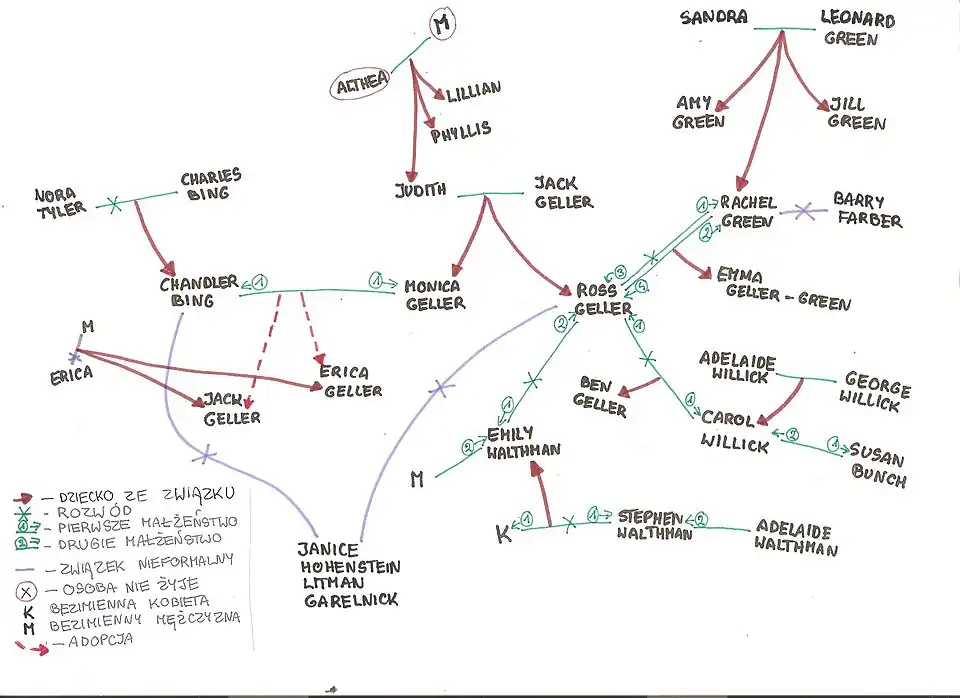 M
ALTHEA
LILLIAN
PHYLLIS
SANDRA
LEONARD
GREEN
AMY
GREEN
JILL
GREEN
NORA
TYLER
CHARIES
BING
JUDITH
JACK
GELLER
1
RACHEL
GREEN
2
BARRY
FARBER
CHANDLER
BING
1
1
MONICA
GELLER
3
ROSS
GELLER
EMMA
GELLER-GREEN
2
1
M
ERICA
JACK
GELLER
ERICA
GELLER
BEN
GELLER
ADELAIDE
WILLICK
GEORGE
WILLICK
1
1
CAROL
WILLICK
2
SUSAN
BUNCH
1
2
EMILY
WALTHMAN
M
K
1
1
STEPHEN
WALTHMAN
2
ADELAIDE
WALTHMAN
JANICE
HOHENSTEIN
LITMAN
GARELNICK
- DZIECKO ZE ZWIĄZKU
- ROZWÓD
1 - PIERWSZE MAŁŻEŃSTWO
2 - DRUGIE MAŁŻEŃSTWO
- ZWIĄZEK NIEFORMALNY
X - OSOBA NIE ŻYJE
K BEZIMIENNA KOBIETA
M BEZIMIENNY MĘŻCZYZNA
- ADOPCJA